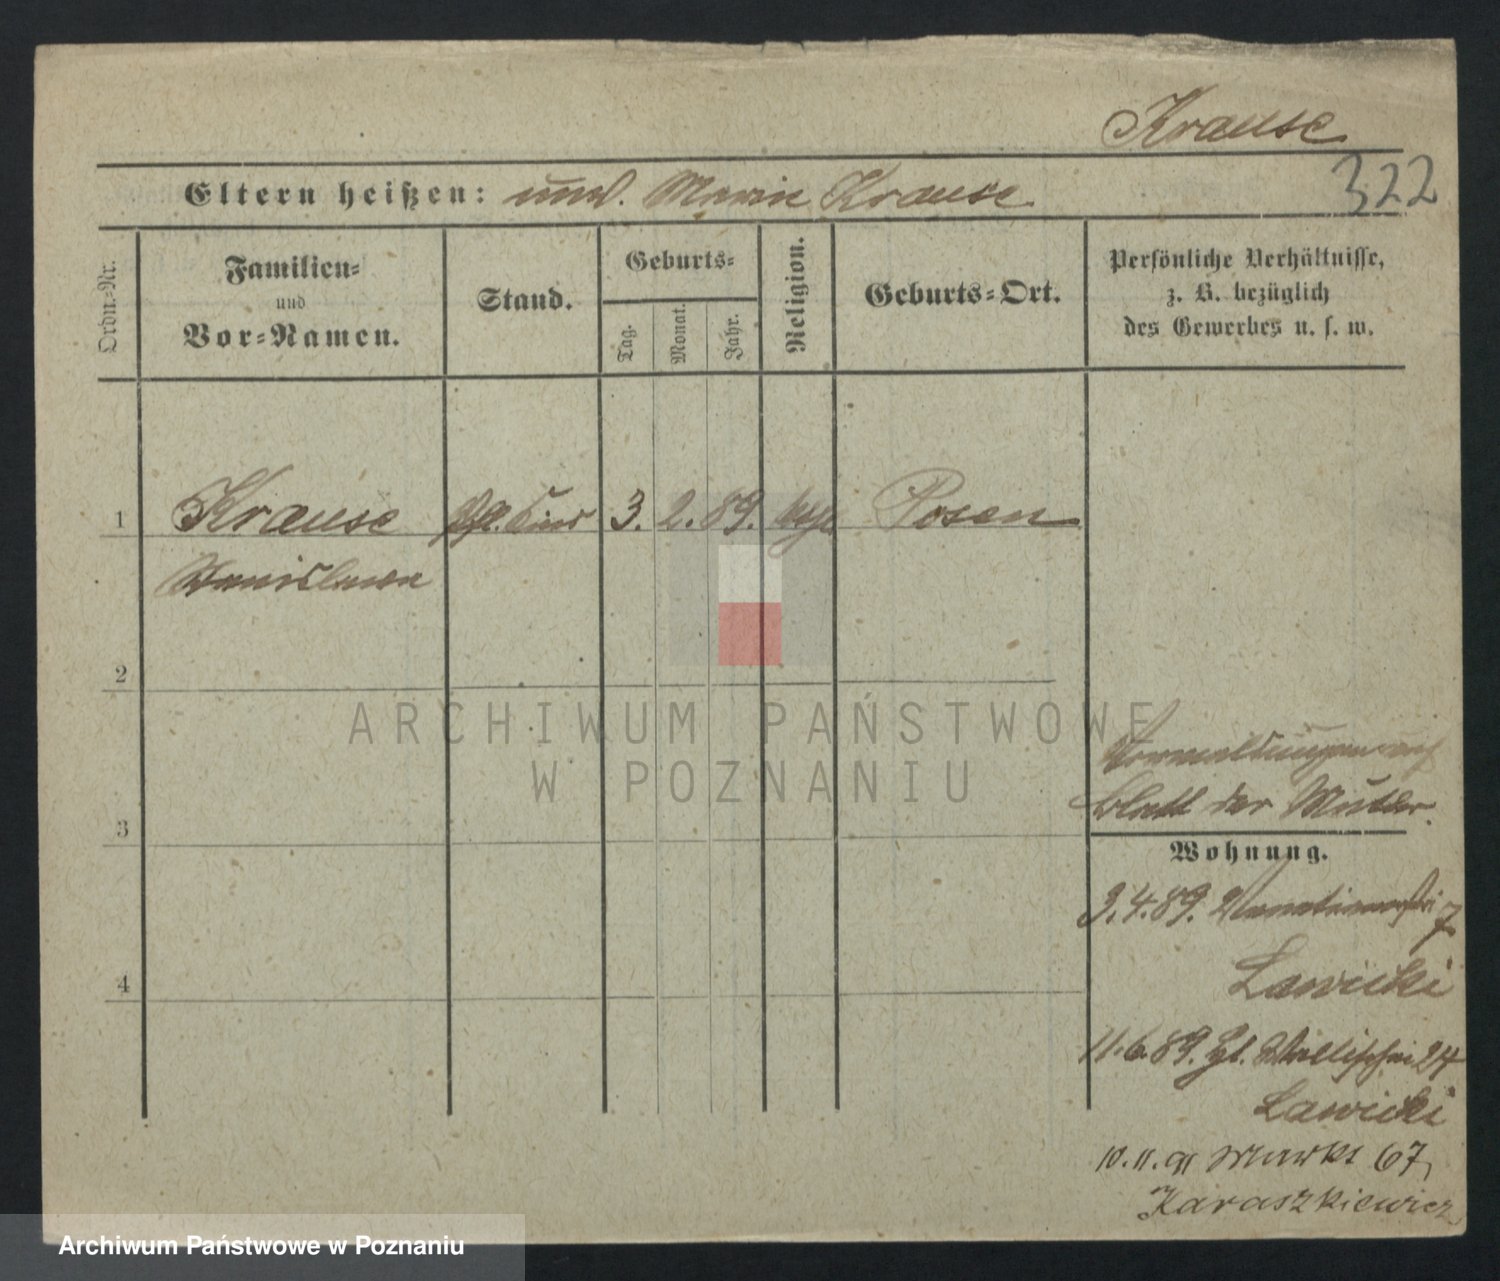 Krause
322
Eltern heißen: unv. Marie Krause
Ordn.-Nr.
Familien-
und
Vor-Namen.
Stand.
Geburts-
Tag.
Monat.
Jahr.
Religion.
Geburts-Ort.
Persönliche Verhältnisse,
z. B. bezüglich
des Gewerbes u. s. w.
1 Krause 3. 2. 89. Posen
Stanislawa
2
3
4
ARCHIWUM PAŃSTWOWE
W POZNANIU
Blatt der Mutter.
Wohnung.
3.4.89. Venetianerstr 7
Lawicki
11.6.89. Wallischei 24
Lawicki
10.11.91 Markt 67,
Karaszkiewicz
Archiwum Państwowe w Poznaniu